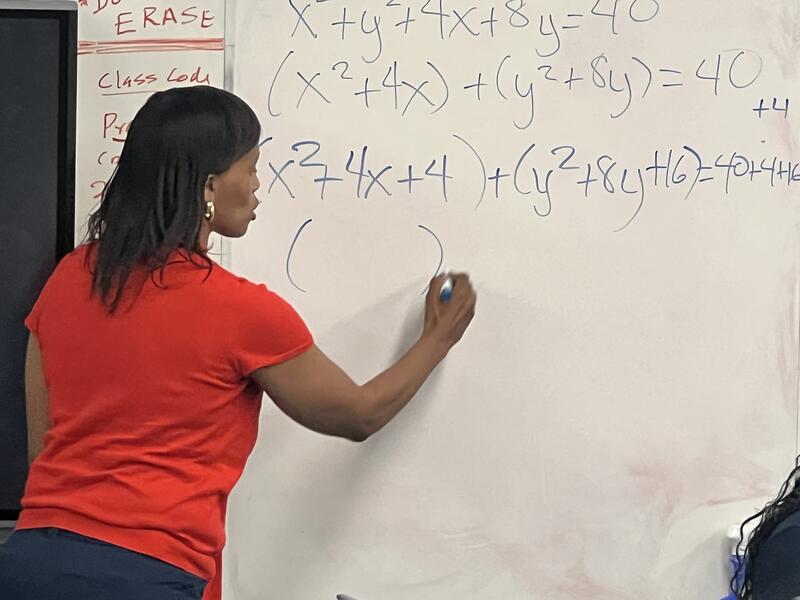 ERASE
Class Code
x²+y²+4x+8y=40
(x²+4x)+(y²+8y)=40
+4
(x²+4x+4)+(y²+8y+16)=40+4+16
( )